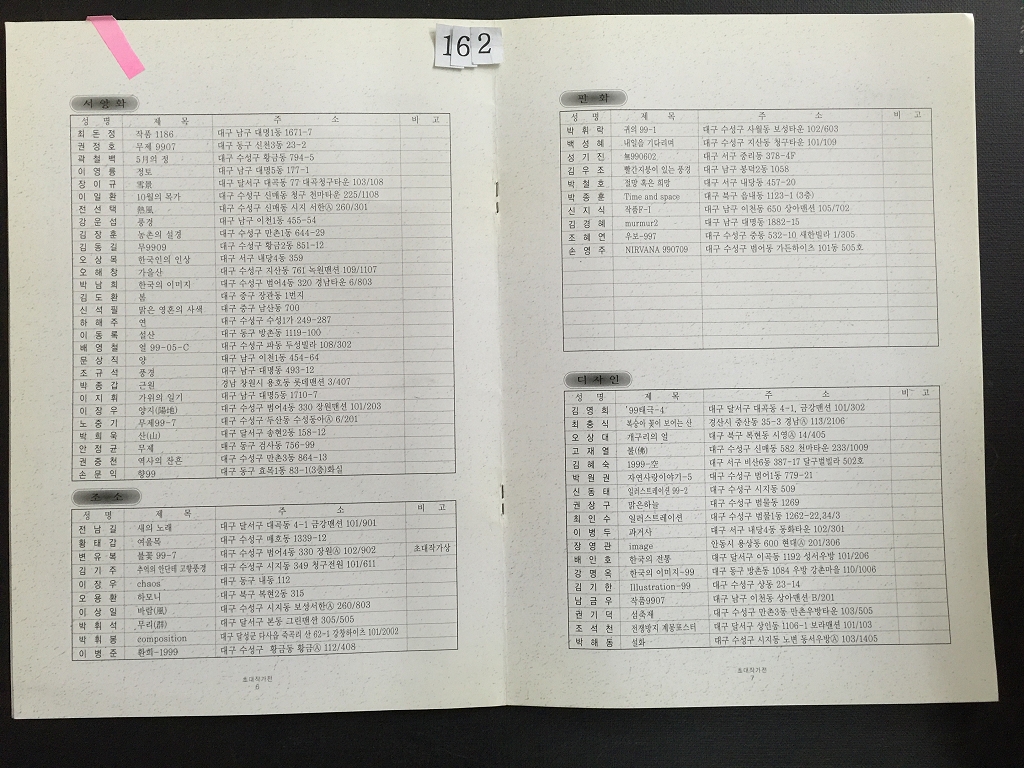 162
서양화
성 명 제 목 주 소 비 고
최 돈 정 작품 1186 대구 남구 대명1동 1671-7
권 정 호 무제 9907 대구 동구 신천3동 23-2
곽 철 백 5月의 정 대구 수성구 황금동 794-5
이 영 륭 정토 대구 남구 대명5동 177-1
장 이 규 雪景 대구 달서구 대곡동 77 대곡청구타운 103/108
이 일 환 10월의 목가 대구 수성구 신매동 청구 천마타운 225/1108
전 선 택 熱風 대구 수성구 신매동 시지 서한Ⓐ 260/301
강 운 섭 풍경 대구 남구 이천1동 455-54
김 장 훈 농촌의 설경 대구 수성구 만촌1동 644-29
김 동 길 무9909 대구 수성구 황금2동 851-12
오 상 목 한국인의 인상 대구 서구 내당4동 359
오 해 창 가을산 대구 수성구 지산동 761 녹원맨션 109/1107
박 남 희 한국의 이미지 대구 수성구 범어4동 320 경남타운 6/803
김 도 환 봄 대구 중구 장관동 1번지
신 석 필 맑은 영혼의 사색 대구 중구 남산동 700
하 해 주 연 대구 수성구 수성1가 249-287
이 동 록 설산 대구 동구 방촌동 1119-100
배 영 철 얼 99-05-C 대구 수성구 파동 두성빌라 108/302
문 상 직 양 대구 남구 이천1동 454-64
조 규 석 풍경 대구 남구 대명동 493-12
박 종 갑 근원 경남 창원시 용호동 롯데맨션 3/407
이 지 휘 가위의 일기 대구 남구 대명5동 1710-7
이 장 우 양지(陽地) 대구 수성구 범어4동 330 장원맨션 101/203
노 중 기 무제99-7 대구 수성구 두산동 수성동아Ⓐ 6/201
박 희 욱 산(山) 대구 달서구 송현2동 158-12
안 정 균 무제 대구 동구 검사동 756-99
권 중 천 역사의 잔흔 대구 수성구 만촌3동 864-13
손 문 익 향99 대구 동구 효목1동 83-1(3층)화실
조 소
성 명 제 목 주 소 비 고
전 남 길 새의 노래 대구 달서구 대곡동 4-1 금강맨션 101/901
황 태 갑 여울목 대구 수성구 매호동 1339-12
변 유 복 불꽃 99-7 대구 수성구 범어4동 330 장원Ⓐ 102/902 초대작가상
김 기 주 추억의 안단테 고향풍경 대구 수성구 시지동 349 청구전원 101/611
이 장 우 chaos 대구 동구 내동 112
오 용 환 하모니 대구 북구 복현2동 315
이 상 일 바람(風) 대구 수성구 시지동 보성서한Ⓐ 260/803
박 휘 석 무리(群) 대구 달서구 본동 그린맨션 305/505
박 휘 봉 composition 대구 달성군 다사읍 죽곡리 산 62-1 강창하이츠 101/2002
이 병 준 환희-1999 대구 수성구 황금동 황금Ⓐ 112/408
초대작가전
6
판 화
성 명 제 목 주 소 비 고
박 휘 락 귀의 99-1 대구 수성구 사월동 보성타운 102/603
백 성 혜 내일을 기다리며 대구 수성구 지산동 청구타운 101/109
성 기 진 無990602 대구 서구 중리동 378-4F
김 우 조 빨간지붕이 있는 풍경 대구 남구 봉덕2동 1058
박 철 호 절망 혹은 희망 대구 서구 내당동 457-20
박 종 훈 Time and space 대구 북구 읍내동 1123-1 (3층)
신 지 식 작품F-I 대구 남구 이천동 650 상아맨션 105/702
김 경 혜 murmur2 대구 남구 대명동 1882-15
조 혜 연 우보-997 대구 수성구 중동 532-10 새한빌라 1/305
손 영 주 NIRVANA 990709 대구 수성구 범어동 가든하이츠 101동 505호
디 자 인
성 명 제 목 주 소 비 고
김 영 희 '99태극-4 대구 달서구 대곡동 4-1, 금강맨션 101/302
최 충 식 복숭아 꽃이 보이는 산 경산시 중산동 35-3 경남Ⓐ 113/2106
오 상 대 개구리의 일 대구 북구 복현동 시영Ⓐ 14/405
고 재 열 불(佛) 대구 수성구 신매동 582 천마타운 233/1009
김 혜 숙 1999-空 대구 서구 비산6동 387-17 달구벌빌라 502호
박 원 권 자연사랑이야기-5 대구 수성구 범어1동 779-21
신 동 태 일러스트레이션 99-2 대구 수성구 시지동 509
권 상 구 맑은하늘 대구 수성구 범물동 1269
최 인 수 일러스트레이션 대구 수성구 범물1동 1262-22,34/3
이 병 두 과거사 대구 서구 내당4동 동화타운 102/301
장 영 관 image 안동시 용상동 600 현대Ⓐ 201/306
배 인 호 한국의 전통 대구 달서구 이곡동 1192 성서우방 101/206
강 명 옥 한국의 이미지-99 대구 동구 방촌동 1084 우방 강촌마을 110/1006
김 기 한 Illustration-99 대구 수성구 상동 23-14
남 금 우 작품9907 대구 남구 이천동 상아맨션 B/201
권 기 덕 성축제 대구 수성구 만촌3동 만촌우방타운 103/505
조 석 천 전쟁방지 계몽포스터 대구 달서구 상인동 1106-1 보라맨션 101/103
박 해 동 설화 대구 수성구 시지동 노변 동서우방Ⓐ 103/1405
초대작가전
7